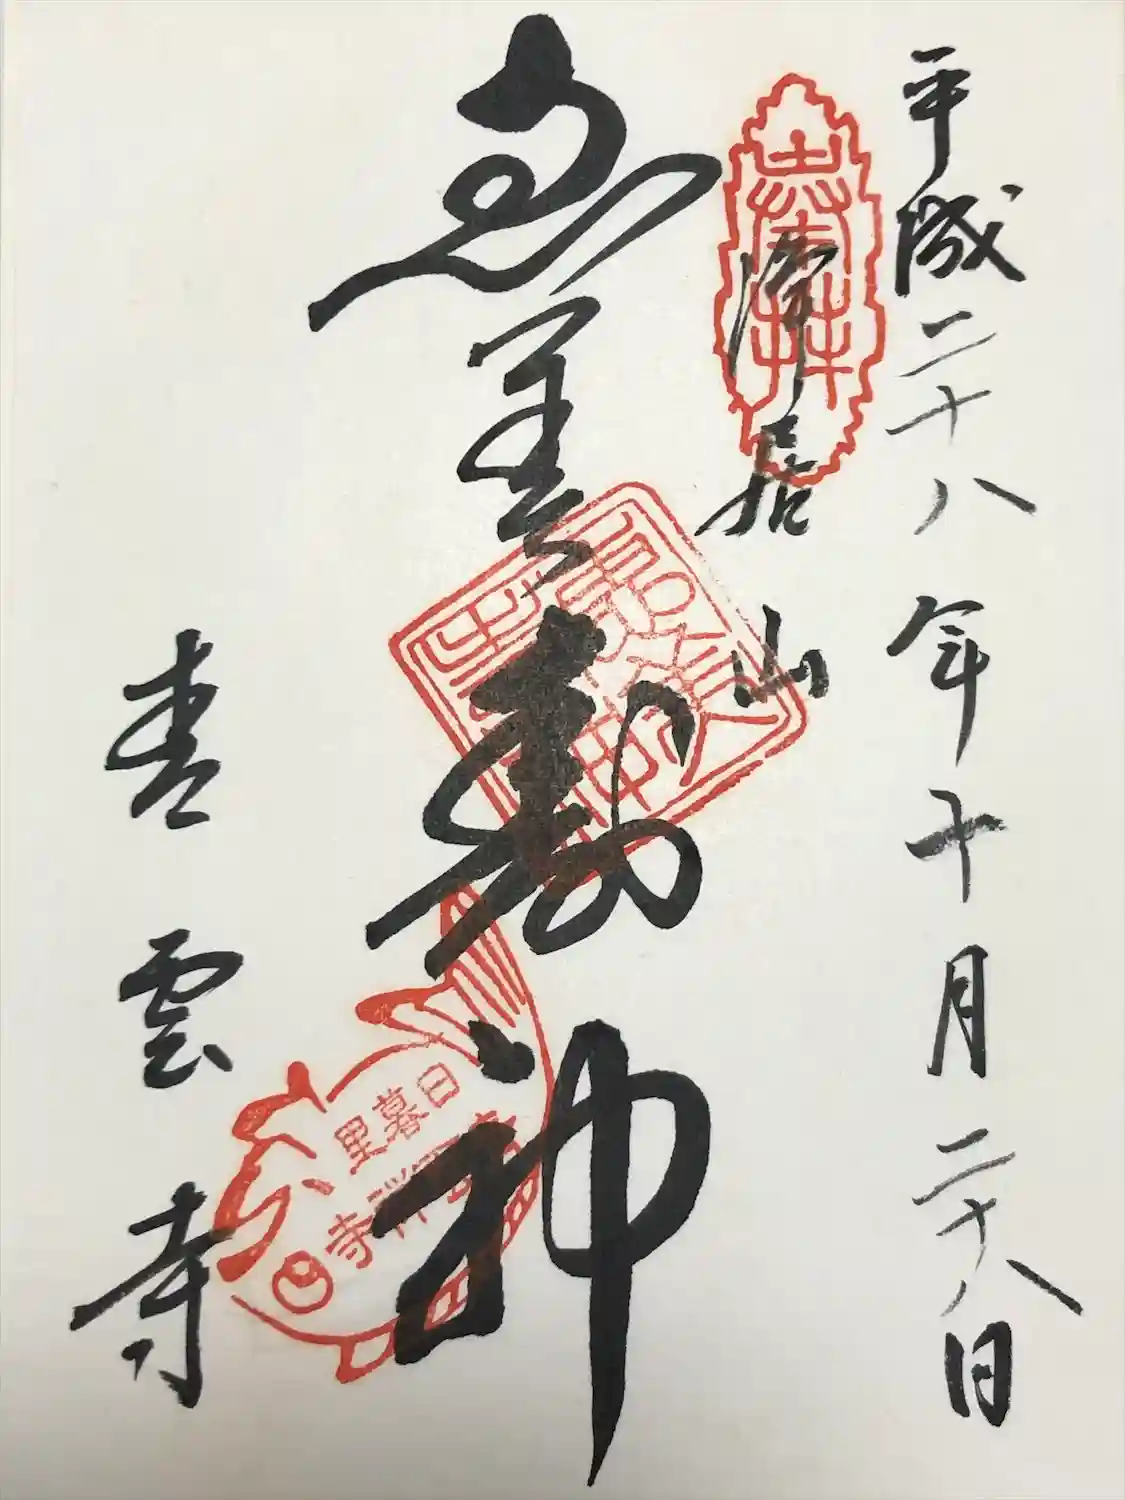 平成二十八年十月二十八日
浄居山
恵美寿神
日暮里
青雲禅寺
青雲寺